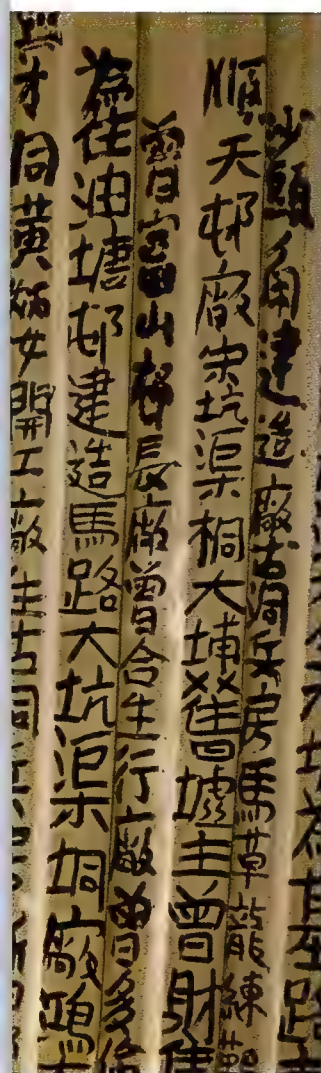 大坑為甘至路
沙頭角建造廠古洞兵房馬草龍練
順天邨廠宋坑渠桐大埔舊墟主曾財
曾富山邨長廠曾合生行廠曾多
為住油塘邨建造馬路大坑渠垌廠鴻
才同黃女開工廠往古同